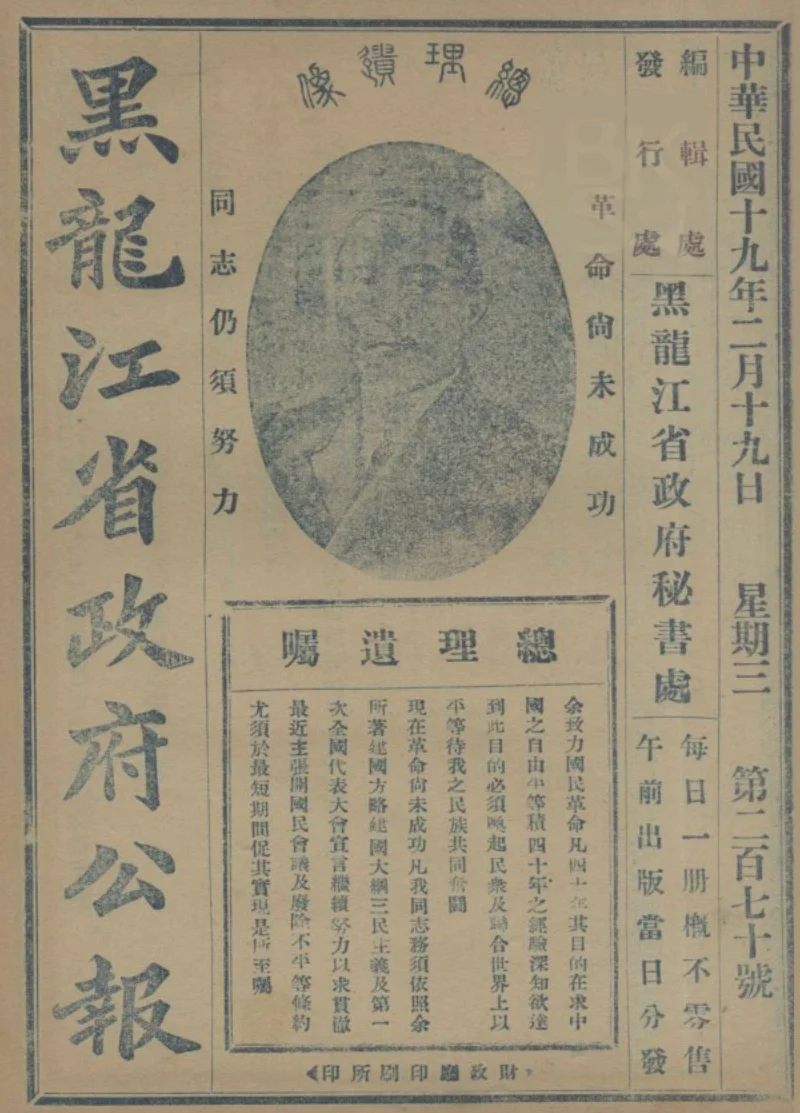 中華民國十九年二月十九日 星期三 第二百七十號
編輯處
發行處
黑龍江省政府秘書處
每日一册概不零售
午前出版當日分發
總理遺像
革命尚未成功
同志仍須努力
總理遺囑
余致力國民革命凡四十年其目的在求中
國之自由平等積四十年之經驗深知欲達
到此目的必須喚起民衆及聯合世界上以
平等待我之民族共同奮鬪
現在革命尚未成功凡我同志務須依照余
所著建國方略建國大綱三民主義及第一
次全國代表大會宣言繼續努力以求貫徹
最近主張開國民會議及廢除不平等條約
尤須於最短期間促其實現是所至囑
財政廳印刷所印
黑龍江省政府公報